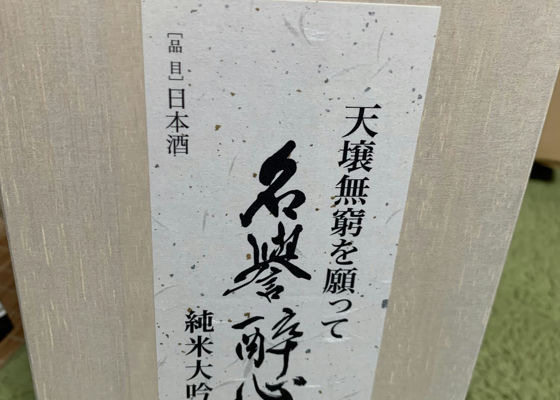 天壌無窮を願って
名譽醉心
純米大吟
［品目］日本酒